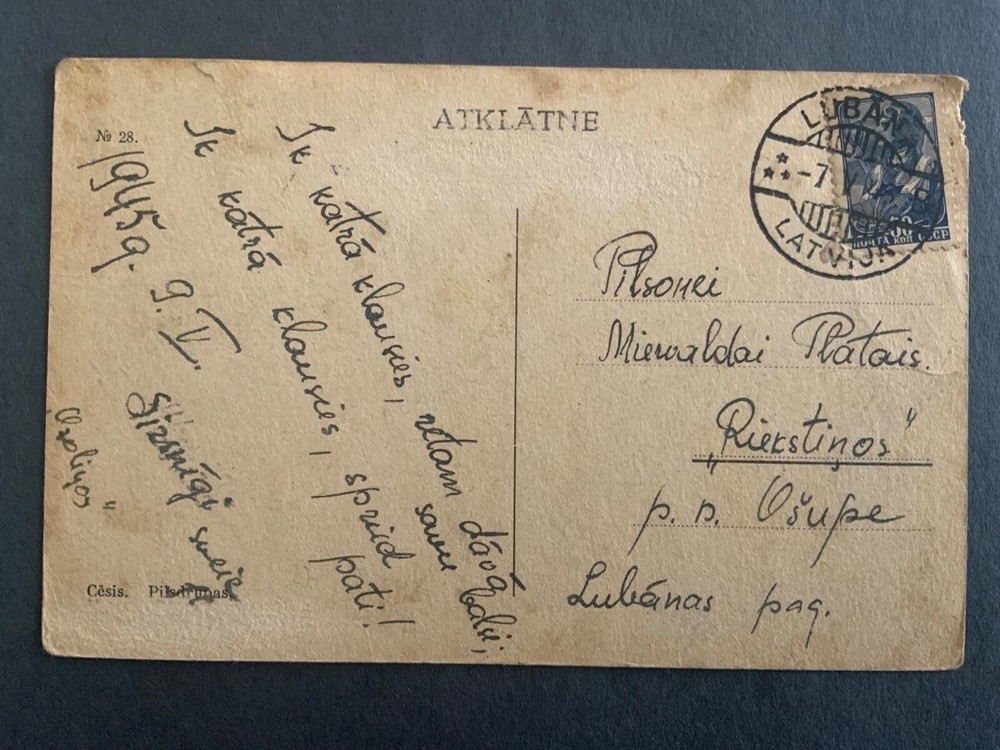 ATKLĀTNE
№ 28.
Ik katrā klausies, retam dāvā
savu balsi;
Ik kātrā klausies, spried pati!
1945 g. 9. V.
Sirsnīgi sveic
"Ozoliņos"
Cēsis. Pilsdrupas.
LUBĀNA
-7 V
LATVIJA
ПОЧТА КОП СССР
Pilsonei
Miervaldai Platais.
„Riekstiņos"
p. n. Ošupe
Lubānas pag.